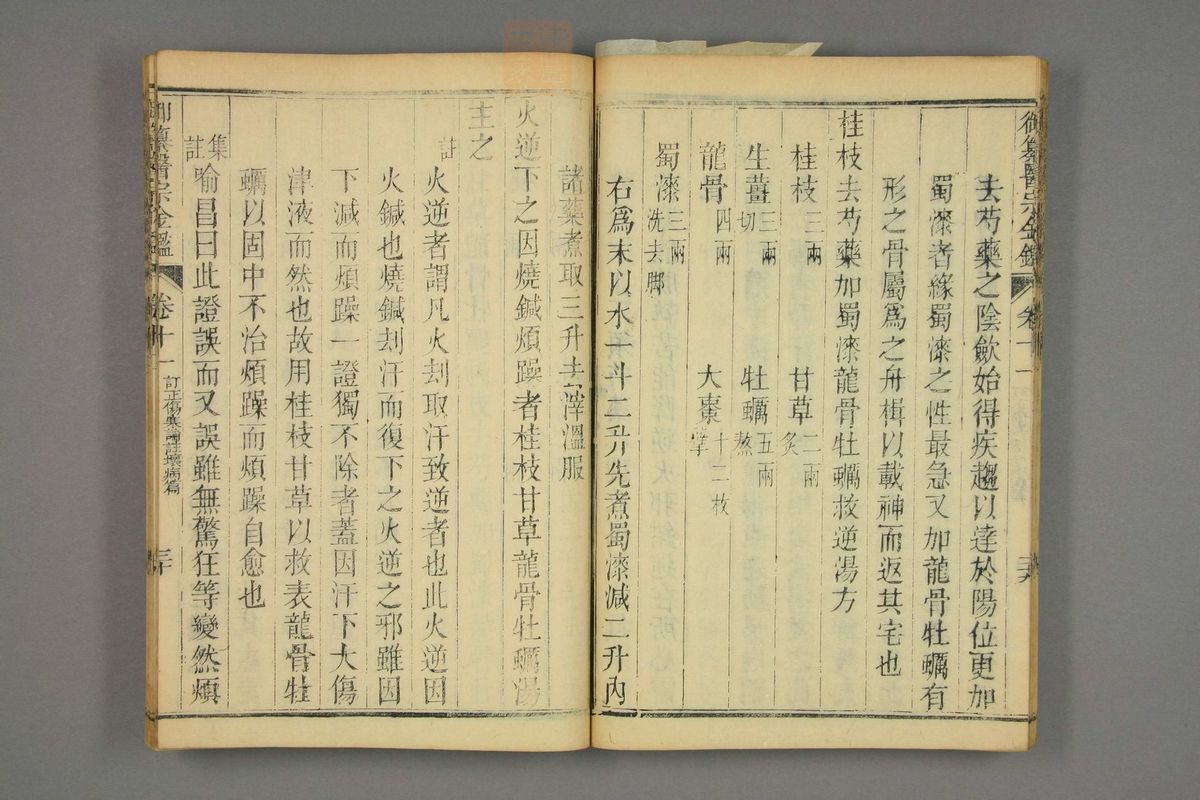 御纂醫宗金鑑 卷十一
去芍藥之陰歛始得疾趨以達於陽位更加
蜀漆者緣蜀漆之性最急又加龍骨牡蠣有
形之骨屬為之舟楫以載神而返其宅也
桂枝去芍藥加蜀漆龍骨牡蠣救逆湯方
桂枝三兩 甘草二兩炙
生薑三兩切 牡蠣五兩熬
龍骨四兩 大棗十二枚擘
蜀漆三兩洗去脚
右爲末以水一斗二升先煮蜀漆減二升內
諸藥煮取三升去滓溫服
火逆下之因燒鍼煩躁者桂枝甘草龍骨牡蠣湯
主之
註
火逆者謂凡火刦取汗致逆者也此火逆因
火鍼也燒鍼刦汗而復下之火逆之邪雖因
下減而煩躁一證獨不除者蓋因汗下大傷
津液而然也故用桂枝甘草以救表龍骨牡
蠣以固中不治煩躁而煩躁自愈也
集註
喻昌曰此證誤而又誤雖無驚狂等變然煩
御纂醫宗金鑑 卷十一 訂正傷寒論註壞病篇 三十